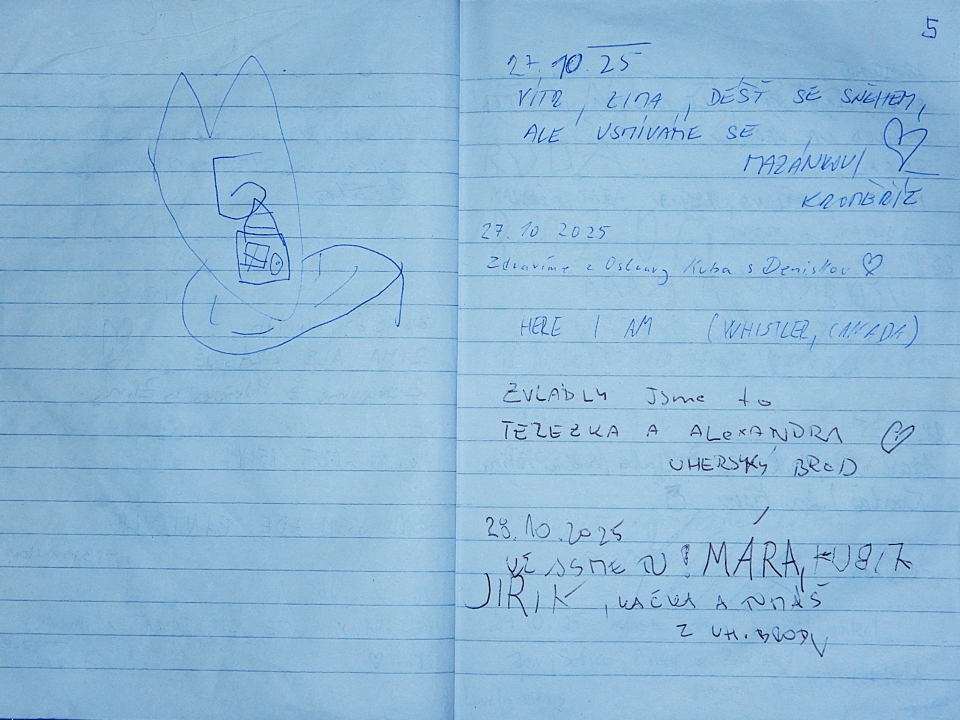 5
27.10.25
VÍTR, ZIMA, DÉŠŤ SE SNĚHEM,
ALE USMÍVÁME SE
MAZÁNKOVI
KROMĚŘÍŽ
27.10 2025
Zdravíme z Ostravy Kuba s Deniskou
HERE I AM (WHISTLER, CANADA)
ZVLÁDLY JSme to
TEREZKA A ALexANDRA
UHERSKÝ BROD
29.10.2025
UŽ JSME TU! MÁRA, KUBÍK
JIŘÍK, KAČKA A TOMÁŠ
Z UH. BRODU